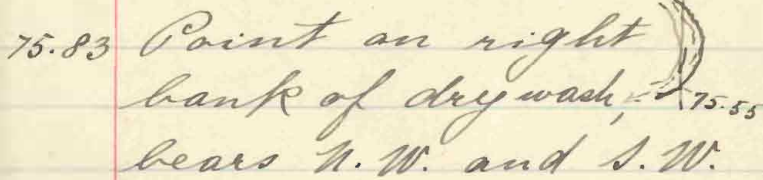 75.83 Point on right
bank of dry wash, 75.55
bears N.W. and S.W.